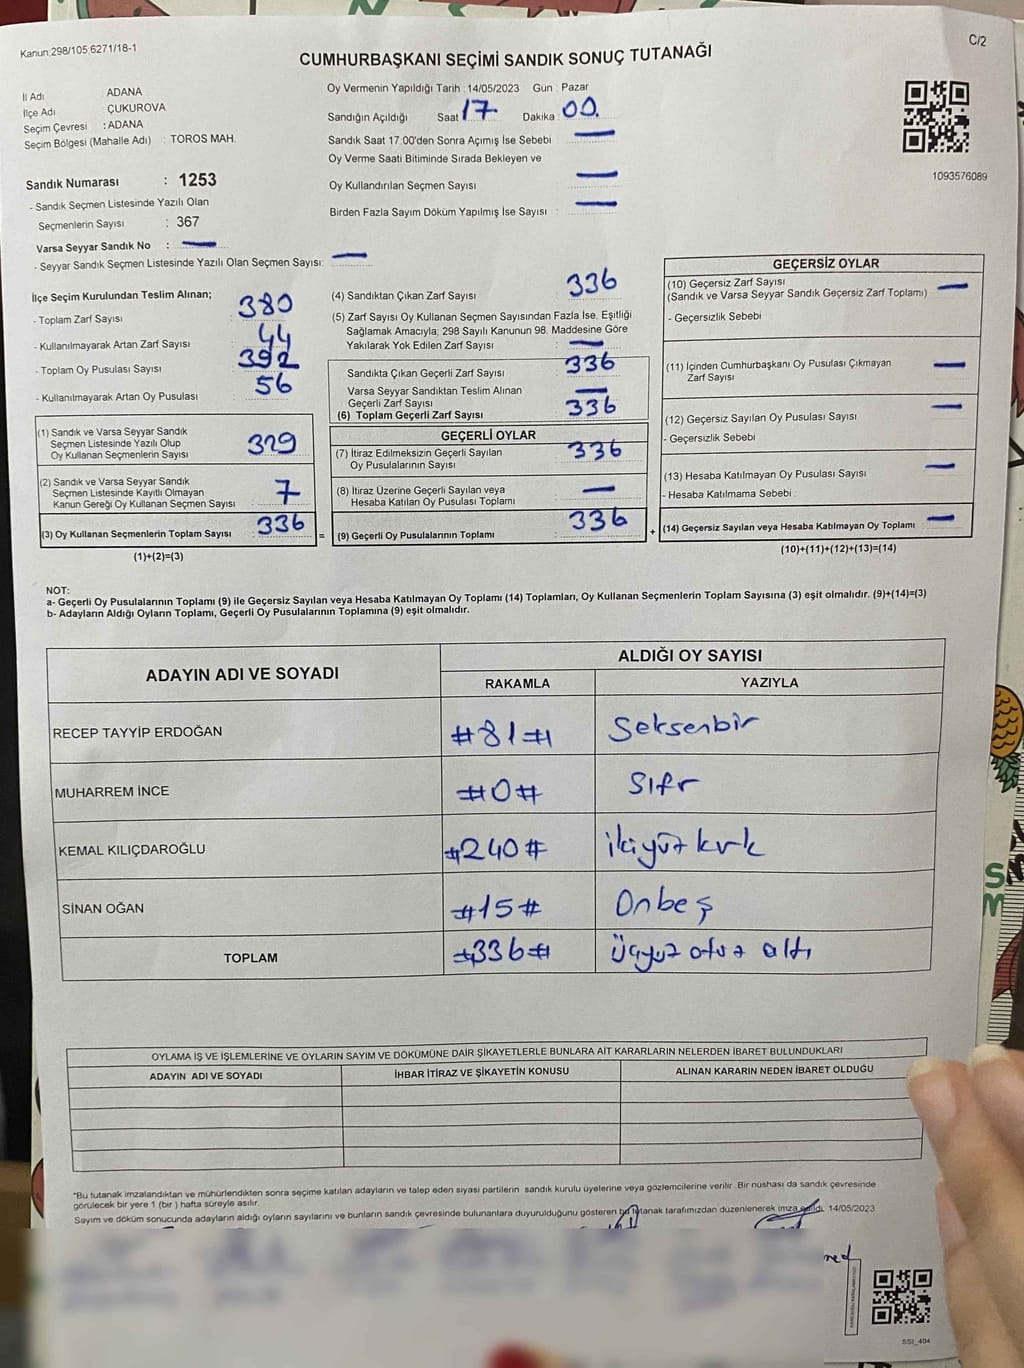 Kanun:298/105:6271/18-1
C/2
CUMHURBAŞKANI SEÇİMİ SANDIK SONUÇ TUTANAĞI
İl Adı ADANA
İlçe Adı ÇUKUROVA
Seçim Çevresi : ADANA
Seçim Bölgesi (Mahalle Adı) : TOROS MAH.
Oy Vermenin Yapıldığı Tarih : 14/05/2023 Gün : Pazar
Sandığın Açıldığı Saat : 17 Dakika : 00
Sandık Saat 17:00'den Sonra Açımış İse Sebebi : —
Oy Verme Saati Bitiminde Sırada Bekleyen ve
Oy Kullandırılan Seçmen Sayısı : —
Birden Fazla Sayım Döküm Yapılmış İse Sayısı : —
1093576089
Sandık Numarası : 1253
- Sandık Seçmen Listesinde Yazılı Olan
Seçmenlerin Sayısı : 367
Varsa Seyyar Sandık No : —
- Seyyar Sandık Seçmen Listesinde Yazılı Olan Seçmen Sayısı: —
İlçe Seçim Kurulundan Teslim Alınan;
- Toplam Zarf Sayısı : 380
- Kullanılmayarak Artan Zarf Sayısı : 44
- Toplam Oy Pusulası Sayısı : 392
- Kullanılmayarak Artan Oy Pusulası : 56
(1) Sandık ve Varsa Seyyar Sandık
Seçmen Listesinde Yazılı Olup
Oy Kullanan Seçmenlerin Sayısı : 329
(2) Sandık ve Varsa Seyyar Sandık
Seçmen Listesinde Kayıtlı Olmayan
Kanun Gereği Oy Kullanan Seçmen Sayısı : 7
(3) Oy Kullanan Seçmenlerin Toplam Sayısı : 336
(1)+(2)=(3)
=
(4) Sandıktan Çıkan Zarf Sayısı : 336
(5) Zarf Sayısı Oy Kullanan Seçmen Sayısından Fazla İse, Eşitliği
Sağlamak Amacıyla; 298 Sayılı Kanunun 98. Maddesine Göre
Yakılarak Yok Edilen Zarf Sayısı : —
Sandıkta Çıkan Geçerli Zarf Sayısı : 336
Varsa Seyyar Sandıktan Teslim Alınan
Geçerli Zarf Sayısı : —
(6) Toplam Geçerli Zarf Sayısı : 336
GEÇERLİ OYLAR
(7) İtiraz Edilmeksizin Geçerli Sayılan
Oy Pusulalarının Sayısı : 336
(8) İtiraz Üzerine Geçerli Sayılan veya
Hesaba Katılan Oy Pusulası Toplamı : —
(9) Geçerli Oy Pusulalarının Toplamı : 336
+
GEÇERSİZ OYLAR
(10) Geçersiz Zarf Sayısı
(Sandık ve Varsa Seyyar Sandık Geçersiz Zarf Toplamı) —
- Geçersizlik Sebebi :
(11) İçinden Cumhurbaşkanı Oy Pusulası Çıkmayan
Zarf Sayısı —
(12) Geçersiz Sayılan Oy Pusulası Sayısı —
- Geçersizlik Sebebi :
(13) Hesaba Katılmayan Oy Pusulası Sayısı —
- Hesaba Katılmama Sebebi :
(14) Geçersiz Sayılan veya Hesaba Katılmayan Oy Toplamı —
(10)+(11)+(12)+(13)=(14)
NOT:
a- Geçerli Oy Pusulalarının Toplamı (9) ile Geçersiz Sayılan veya Hesaba Katılmayan Oy Toplamı (14) Toplamları, Oy Kullanan Seçmenlerin Toplam Sayısına (3) eşit olmalıdır. (9)+(14)=(3)
b- Adayların Aldığı Oyların Toplamı, Geçerli Oy Pusulalarının Toplamına (9) eşit olmalıdır.
ADAYIN ADI VE SOYADI
ALDIĞI OY SAYISI
RAKAMLA YAZIYLA
RECEP TAYYİP ERDOĞAN #81# Seksenbir
MUHARREM İNCE #0# Sıfr
KEMAL KILIÇDAROĞLU #240# ikiyüzkırk
SİNAN OĞAN #15# Onbeş
TOPLAM #336# Üçyüz otuz altı
OYLAMA İŞ VE İŞLEMLERİNE VE OYLARIN SAYIM VE DÖKÜMÜNE DAİR ŞİKAYETLERLE BUNLARA AİT KARARLARIN NELERDEN İBARET BULUNDUKLARI
ADAYIN ADI VE SOYADI İHBAR İTİRAZ VE ŞİKAYETİN KONUSU ALINAN KARARIN NEDEN İBARET OLDUĞU
*Bu tutanak imzalandıktan ve mühürlendikten sonra seçime katılan adayların ve talep eden siyasi partilerin sandık kurulu üyelerine veya gözlemcilerine verilir. Bir nüshası da sandık çevresinde
görülecek bir yere 1 (bir ) hafta süreyle asılır.
Sayım ve döküm sonucunda adayların aldığı oyların sayılarını ve bunların sandık çevresinde bulunanlara duyurulduğunu gösteren bu tutanak tarafımızdan düzenlenerek imza edildi. 14/05/2023
SSI_404